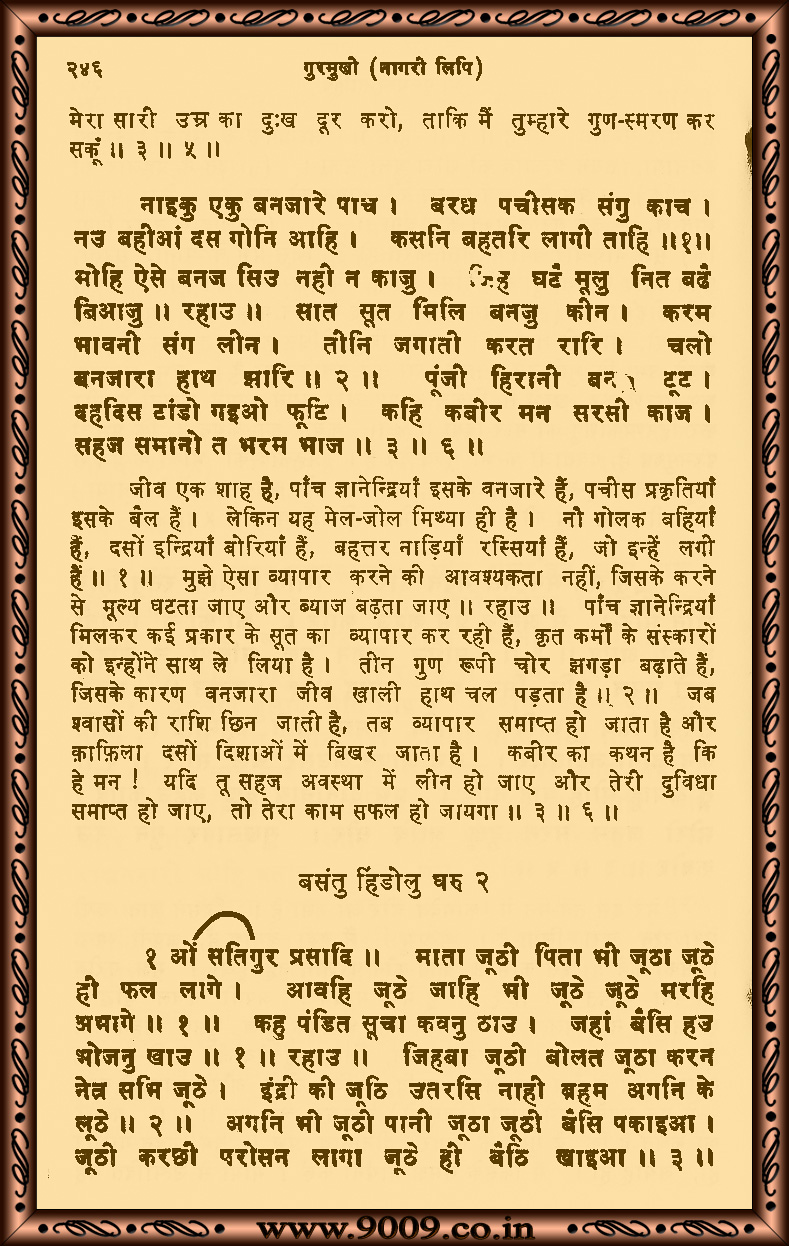 २४६ गुरमुखी (नागरी लिपि)
मेरा सारी उम्र का दुःख दूर करो, ताकि मैं तुम्हारे गुण-स्मरण कर
सकूँ ॥ ३ ॥ ५ ॥
नाइकु एकु बनजारे पाच । बरध पचीसक संगु काच ।
नउ बहीआं दस गोनि आहि । कसनि बहतरि लागी ताहि ॥१॥
मोहि ऐसे बनज सिउ नही न काजु । घटै मूलु नित बढै
बिआजु ॥ रहाउ ॥ सात सूत मिलि बनजु कीन । करम
भावनी संग लीन । तीनि जगाती करत रारि । चलो
बनजारा हाथ झारि ॥ २ ॥ पूंजी हिरानी टूट ।
दहदिस टांडो गइओ फूटि । कहि कबीर मन सरसी काज ।
सहज समानो त भरम भाज ॥ ३ ॥ ६ ॥
जीव एक शाह है, पाँच ज्ञानेन्द्रियाँ इसके वनजारे हैं, पचीस प्रकृतियाँ
इसके बैल हैं । लेकिन यह मेल-जोल मिथ्या ही है । नौ गोलक बहियाँ
हैं, दसों इन्द्रियाँ बोरियाँ हैं, बहत्तर नाड़ियाँ रस्सियाँ हैं, जो इन्हें लगी
हैं ॥ १ ॥ मुझे ऐसा व्यापार करने की आवश्यकता नहीं, जिसके करने
से मूल्य घटता जाए और ब्याज बढ़ता जाए ॥ रहाउ ॥ पाँच ज्ञानेन्द्रियाँ
मिलकर कई प्रकार के सूत का व्यापार कर रही हैं, कृत कर्मों के संस्कारों
को इन्होंने साथ ले लिया है । तीन गुण रूपी चोर झगड़ा बढ़ाते हैं,
जिसके कारण वनजारा जीव खाली हाथ चल पड़ता है ॥ २ ॥ जब
श्वासों की राशि छिन जाती है, तब व्यापार समाप्त हो जाता है और
क़ाफ़िला दसों दिशाओं में बिखर जाता है । कबीर का कथन है कि
हे मन ! यदि तू सहज अवस्था में लीन हो जाए और तेरी दुविधा
समाप्त हो जाए, तो तेरा काम सफल हो जायगा ॥ ३ ॥ ६ ॥
बसंतु हिंडोलु घरु २
१ ओं सतिगुर प्रसादि ॥ माता जूठी पिता भी जूठा जूठे
ही फल लागे । आवहि जूठे जाहि भी जूठे जूठे मरहि
अभागे ॥ १ ॥ कहु पंडित सूचा कवनु ठाउ । जहां बैसि हउ
भोजनु खाउ ॥ १ ॥ रहाउ ॥ जिहबा जूठी बोलत जूठा करन
नेत्र सभि जूठे । इंद्री की जूठि उतरसि नाही ब्रहम अगनि के
लूठे ॥ २ ॥ अगनि भी जूठी पानी जूठा जूठी बैसि पकाइआ ।
जूठी करछी परोसन लागा जूठे ही बैठि खाइआ ॥ ३ ॥
www.9009.co.in